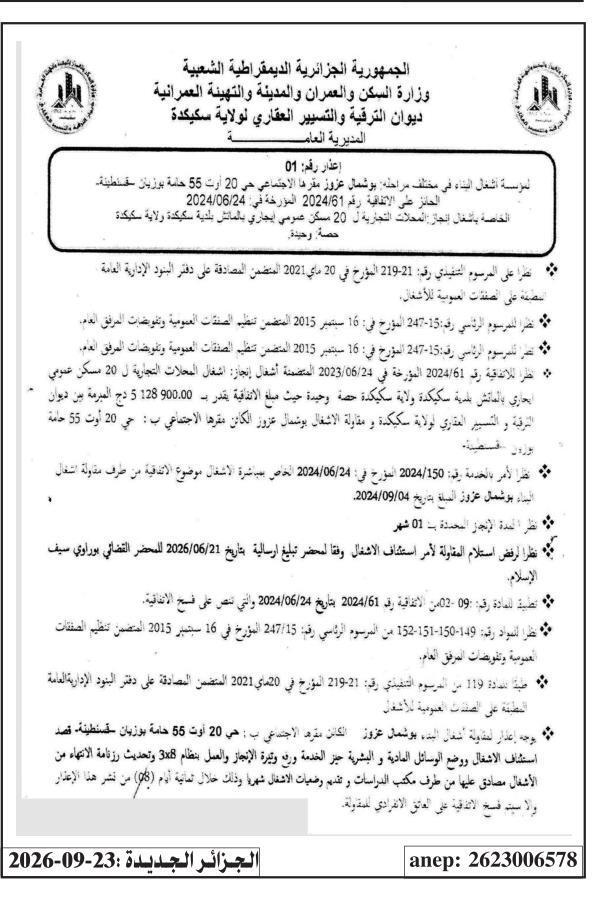 الجمهورية الجزائرية الديمقراطية الشعبية
وزارة السكن والعمران والمدينة والتهيئة العمرانية
ديوان الترقية والتسيير العقاري لولاية سكيكدة
المديرية العامـــــــــــة
إعذار رقم: 01
لمؤسسة اشغال البناء في مختلف مراحله: بوشمال عزوز مقرها الاجتماعي حي 20 أوت 55 حامة بوزيان -قسنطينة-
الحائز على الاتفاقية رقم 2024/61 المؤرخة في: 2024/06/24
الخاصة بأشغال إنجاز:المحلات التجارية ل 20 مسكن عمومي ايجاري بالماتش بلدية سكيكدة ولاية سكيكدة
حصة: وحيدة.
❖ نظرا على المرسوم التنفيذي رقم: 21-219 المؤرخ في 20 ماي2021 المتضمن المصادقة على دفتر البنود الإدارية العامة
المطبقة على الصفقات العمومية للأشغال.
❖ نظرا للمرسوم الرئاسي رقم:15-247 المؤرخ في: 16 سبتمبر 2015 المتضمن تنظيم الصفقات العمومية وتفويضات المرفق العام.
❖ نظرا للمرسوم الرئاسي رقم:15-247 المؤرخ في: 16 سبتمبر 2015 المتضمن تنظيم الصفقات العمومية وتفويضات المرفق العام.
❖ نظرا للاتفاقية رقم 2024/61 المؤرخة في 2023/06/24 المتضمنة أشغال إنجاز: اشغال المحلات التجارية ل 20 مسكن عمومي
ايجاري بالماتش بلدية سكيكدة ولاية سكيكدة حصة وحيدة حيث مبلغ الاتفاقية يقدر بـ 5 128 900.00 دج المبرمة بين ديوان
الترقية و التسيير العقاري لولاية سكيكدة و مقاولة الاشغال بوشمال عزوز الكائن مقرها الاجتماعي ب : حي 20 أوت 55 حامة
بوزيان -قسنطينة-
❖ نظرا لأمر بالخدمة رقم: 2024/150 المؤرخ في: 2024/06/24 الخاص بمباشرة الاشغال موضوع الاتفاقية من طرف مقاولة اشغال
البناء بوشمال عزوز المبلغ بتاريخ 2024/09/04.
❖ نظرا لمدة الإنجاز المحددة بـ 01 شهر
❖ نظرا لرفض استلام المقاولة لأمر استئناف الاشغال وفقا لمحضر تبليغ ارسالية بتاريخ 2026/06/21 للمحضر القضائي بوراوي سيف
الإسلام.
❖ تطبيقا للمادة رقم: 09 -02من الاتفاقية رقم 2024/61 بتاريخ 2024/06/24 والتي تنص على فسخ الاتفاقية.
❖ نظرا للمواد رقم: 149-150-151-152 من المرسوم الرئاسي رقم: 247/15 المؤرخ في 16 سبتمبر 2015 المتضمن تنظيم الصفقات
العمومية وتفويضات المرفق العام.
❖ طبقا للمادة 119 من المرسوم التنفيذي رقم: 21-219 المؤرخ في 20ماي2021 المتضمن المصادقة على دفتر البنود الإداريةالعامة
المطبقة على الصفقات العمومية للأشغال
❖ يوجه إعذار لمقاولة أشغال البناء بوشمال عزوز الكائن مقرها الاجتماعي ب : حي 20 أوت 55 حامة بوزيان -قسنطينة- قصد
استئناف الاشغال ووضع الوسائل المادية و البشرية حيز الخدمة ورفع وتيرة الإنجاز والعمل بنظام 3x8 وتحديث رزنامة الانتهاء من
الأشغال مصادق عليها من طرف مكتب الدراسات و تقديم وضعيات الاشغال شهريا وذلك خلال ثمانية أيام (08) من نشر هذا الإعذار
والا سيتم فسخ الاتفاقية على العاتق الانفرادي للمقاولة.
الجزائر الجديدة :23-09-2026
anep: 2623006578